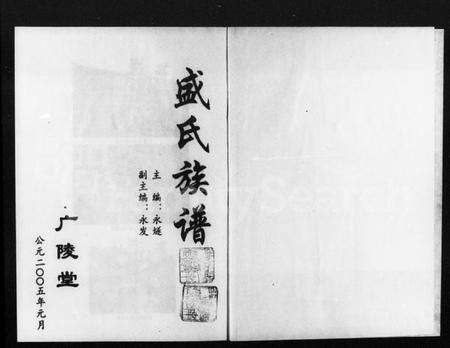 盛氏族谱
主编：永燧
副主编：永发
广陵堂
公元二〇〇五年元月